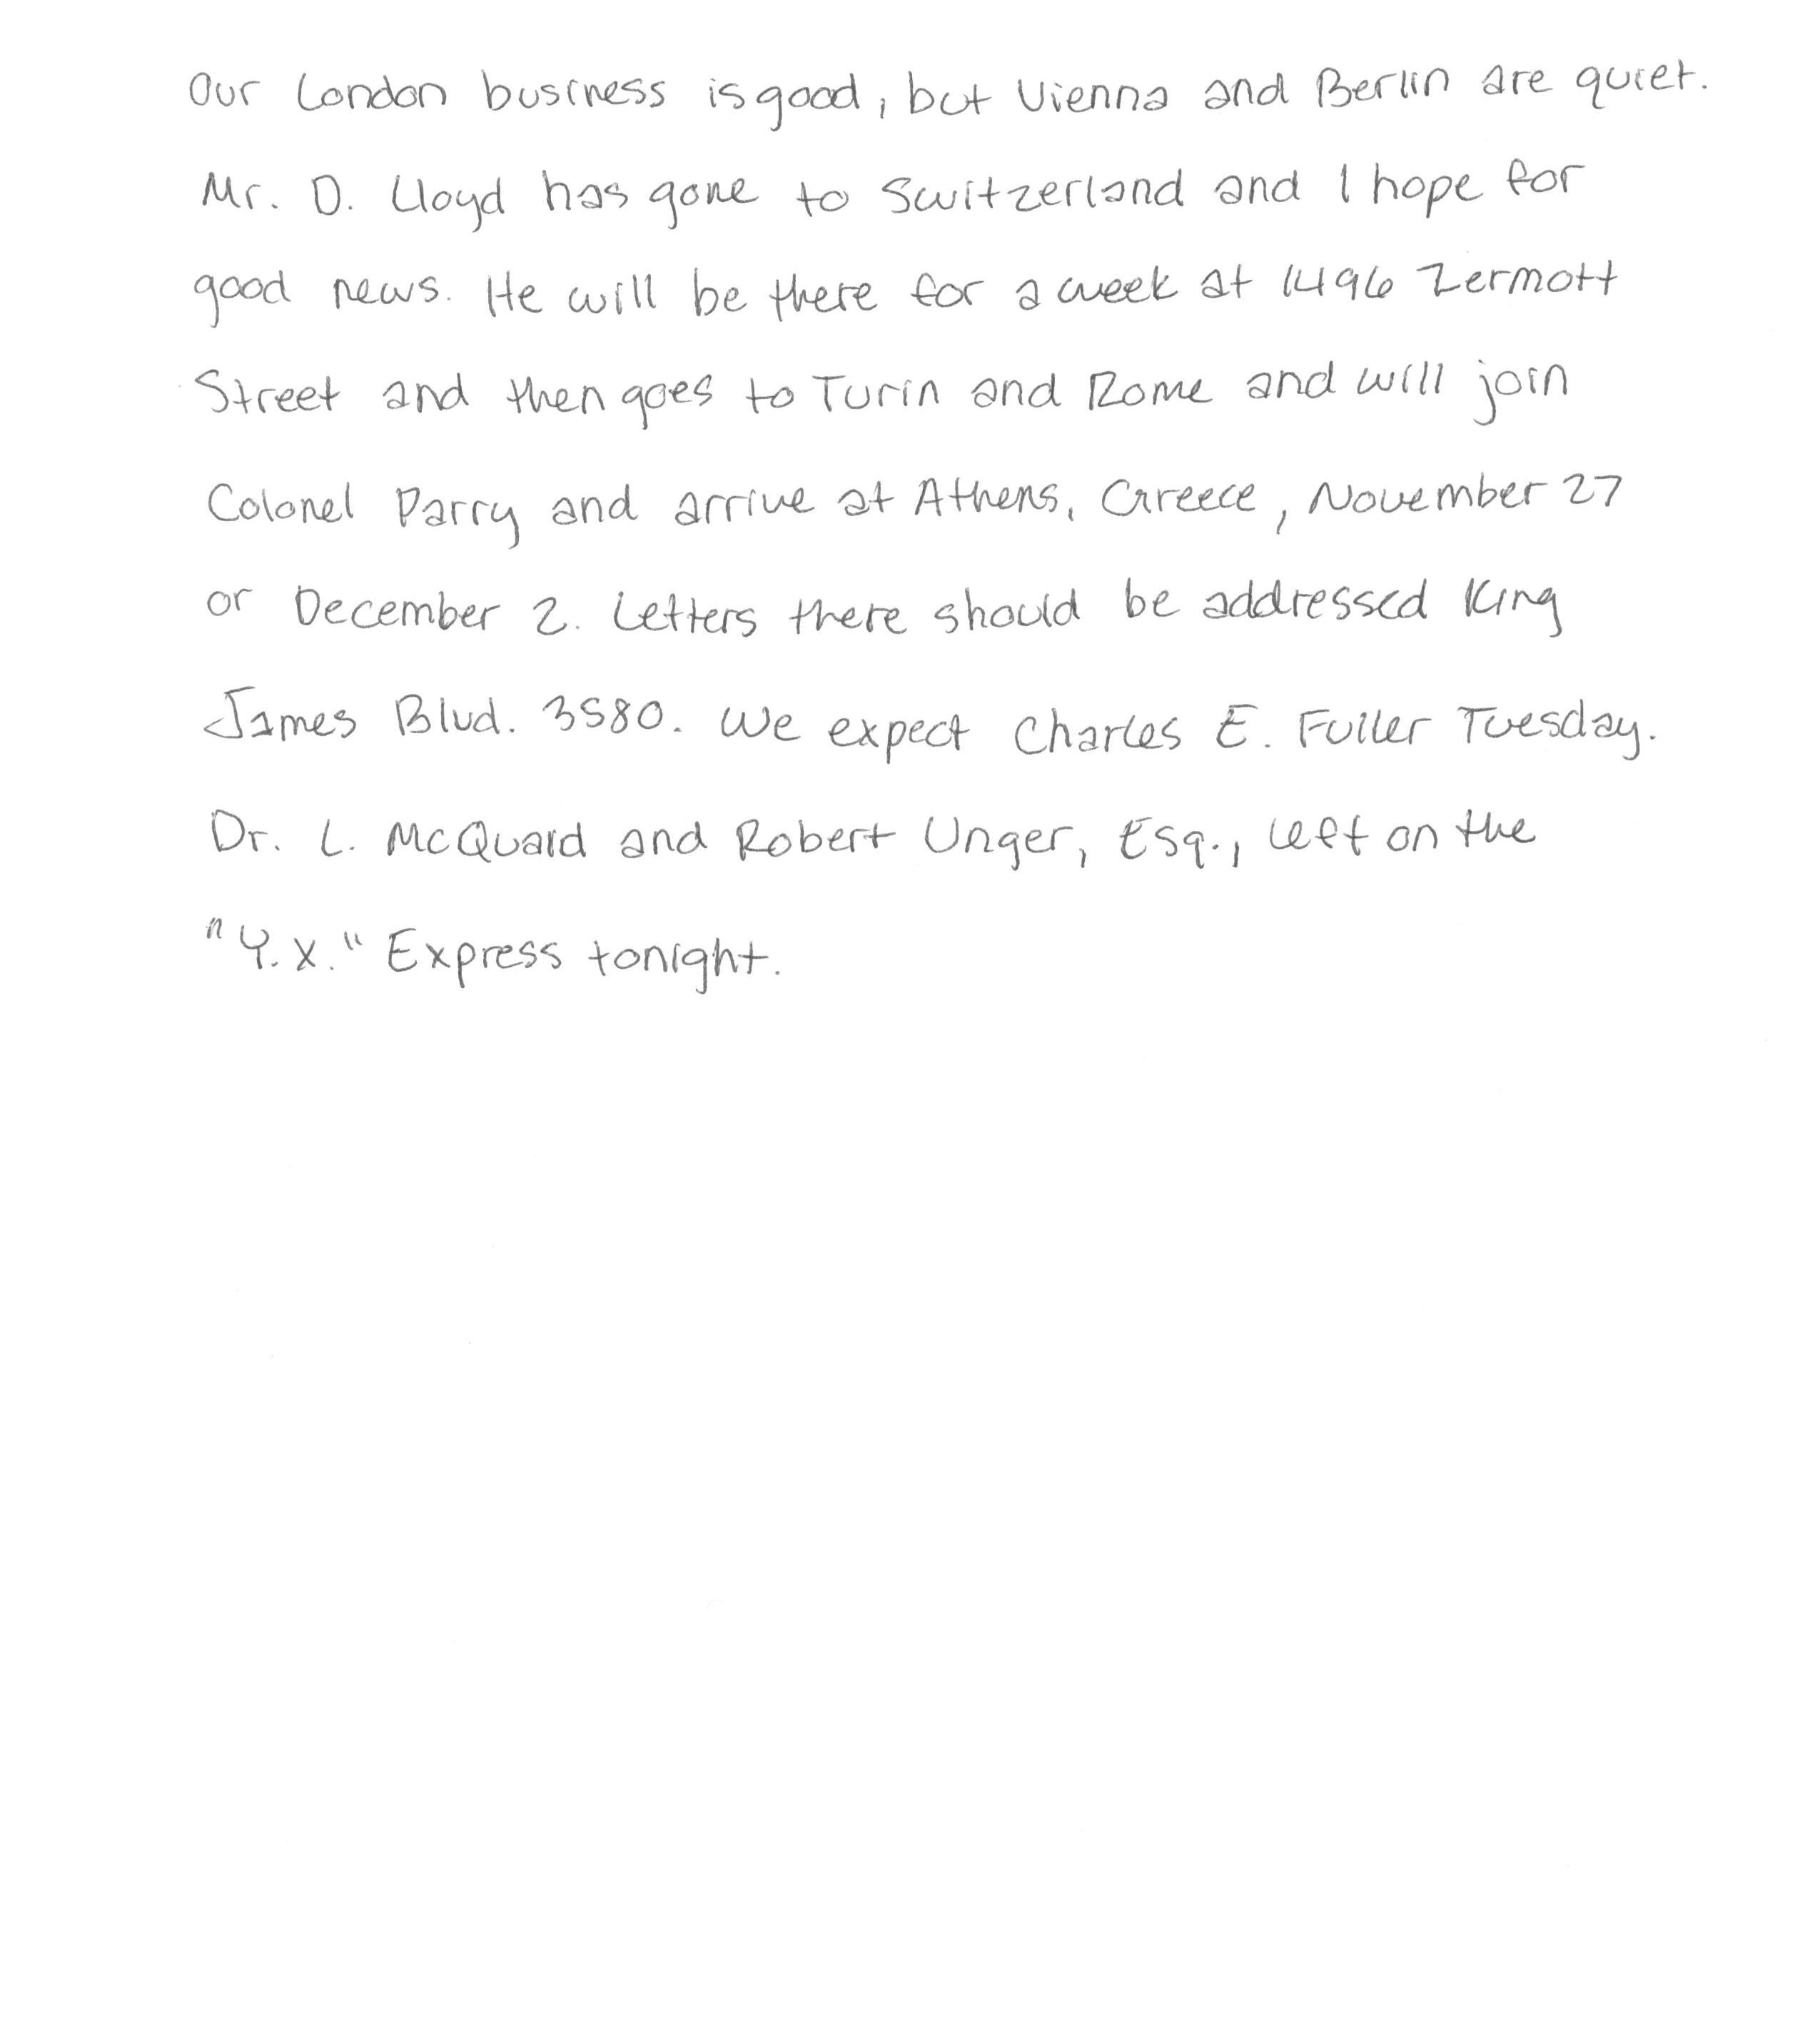 Our London business is good, but Vienna and Berlin are quiet.
Mr. D. Lloyd has gone to Switzerland and I hope for
good news. He will be there for a week at 1496 Zermott
Street and then goes to Turin and Rome and will join
Colonel Parry and arrive at Athens, Greece, November 27
or December 2. Letters there should be addressed King
James Blvd. 3580. We expect Charles E. Fuller Tuesday.
Dr. L. McQuaid and Robert Unger, Esq., left on the
"Y.X." Express tonight.